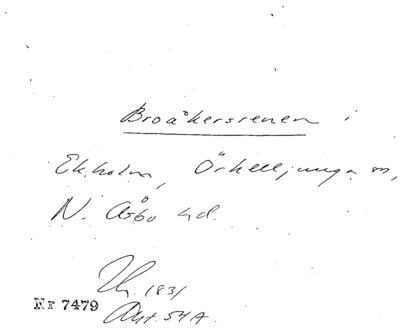 Broåkersrenen i
Ekholm, Örkelljunga sn,
N. Åsbo hd.
1831
Nr 7479
Akt. 54A